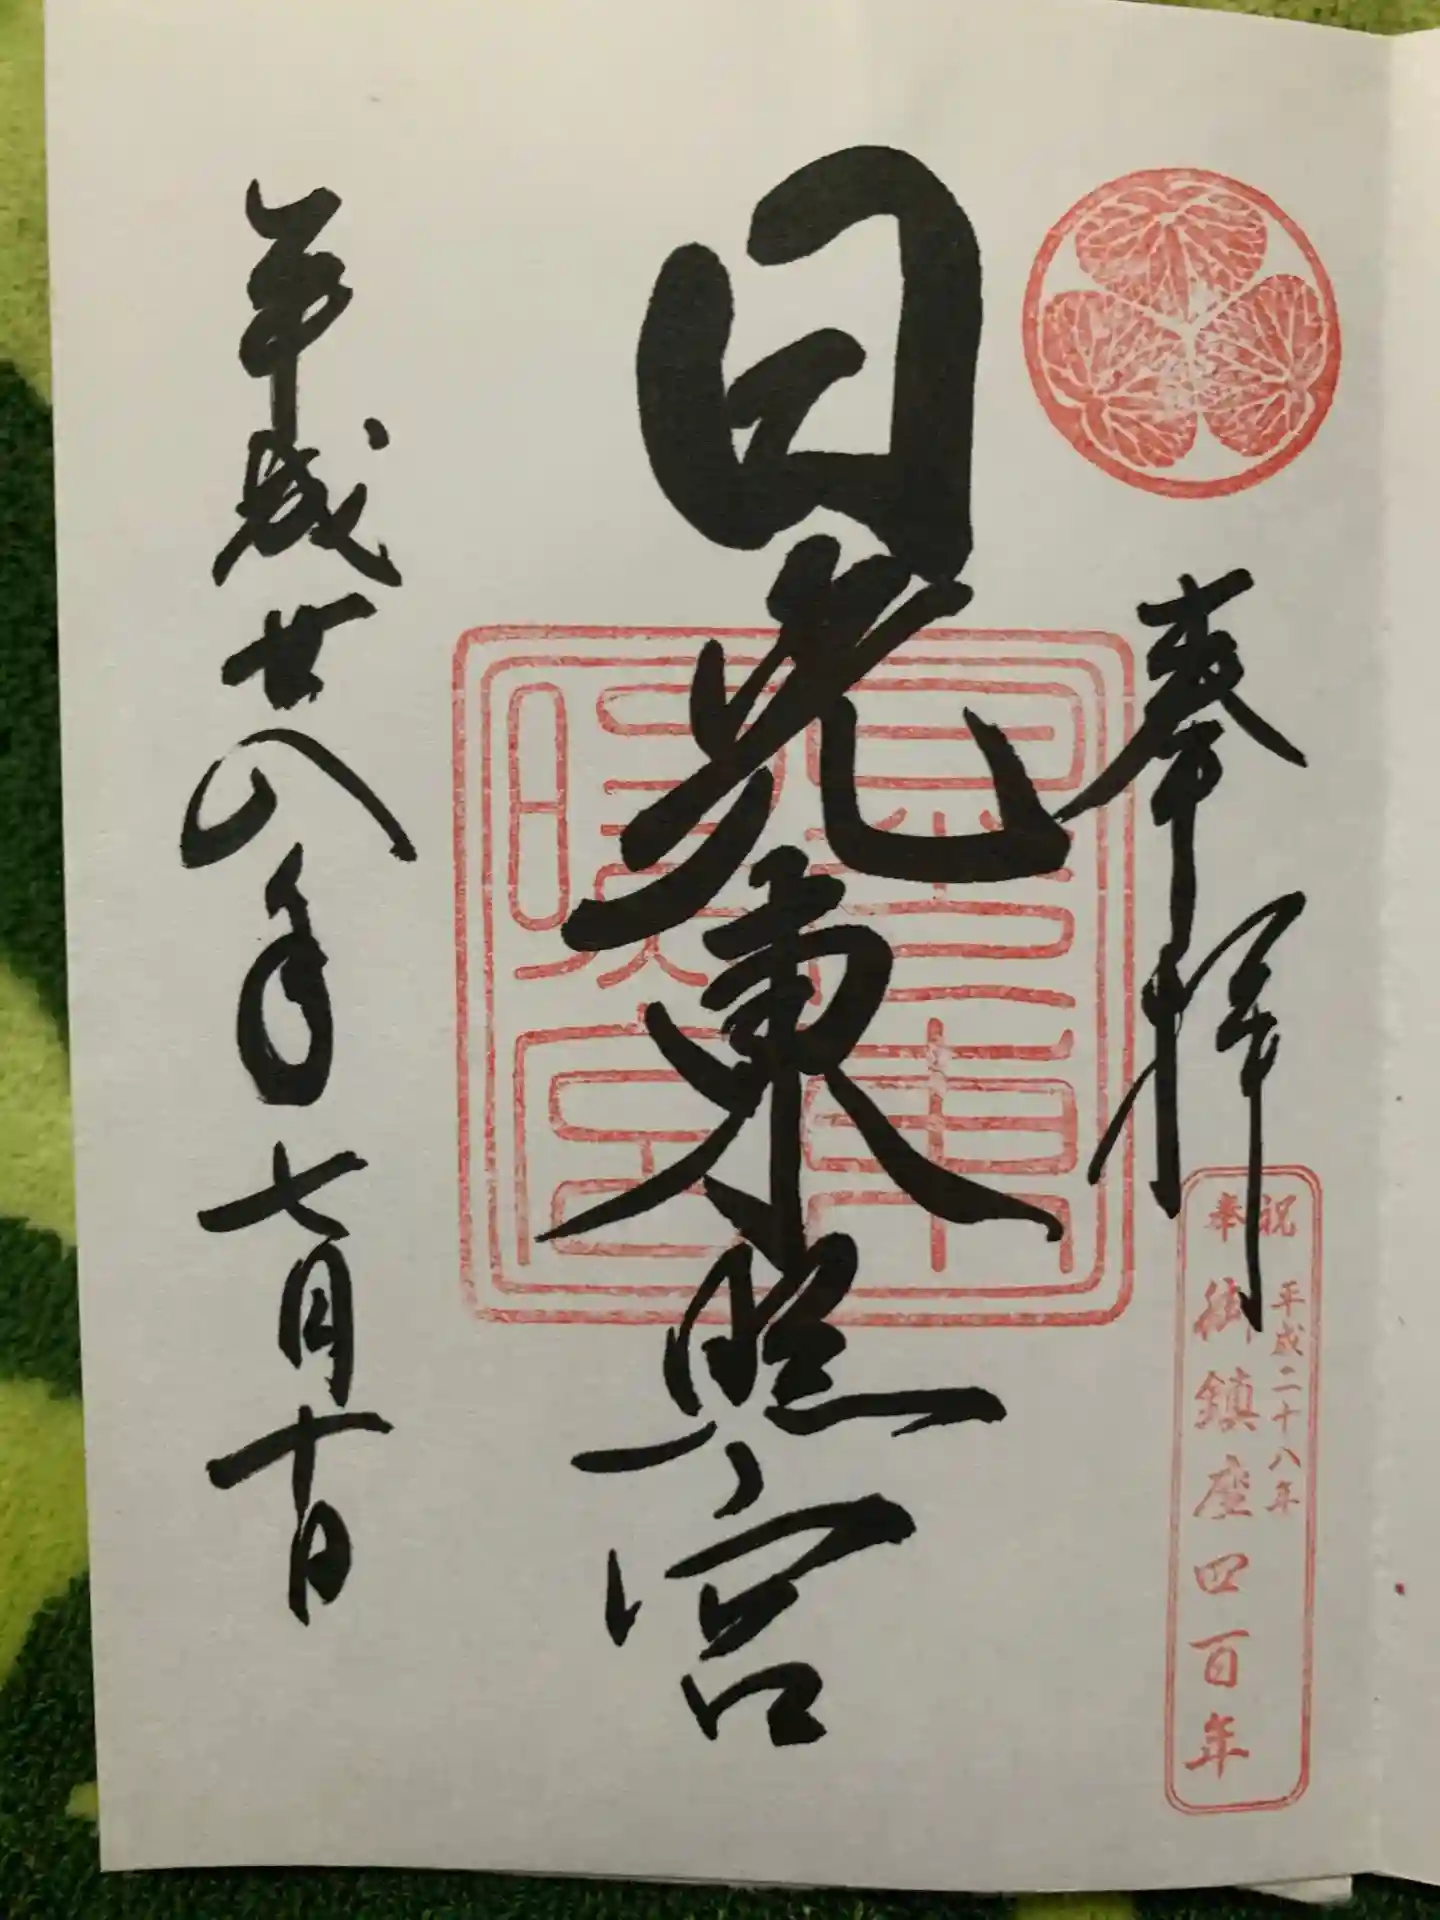 奉拝
奉祝
平成二十八年
御鎮座四百年
日光東照宮
平成廿八年七月十日